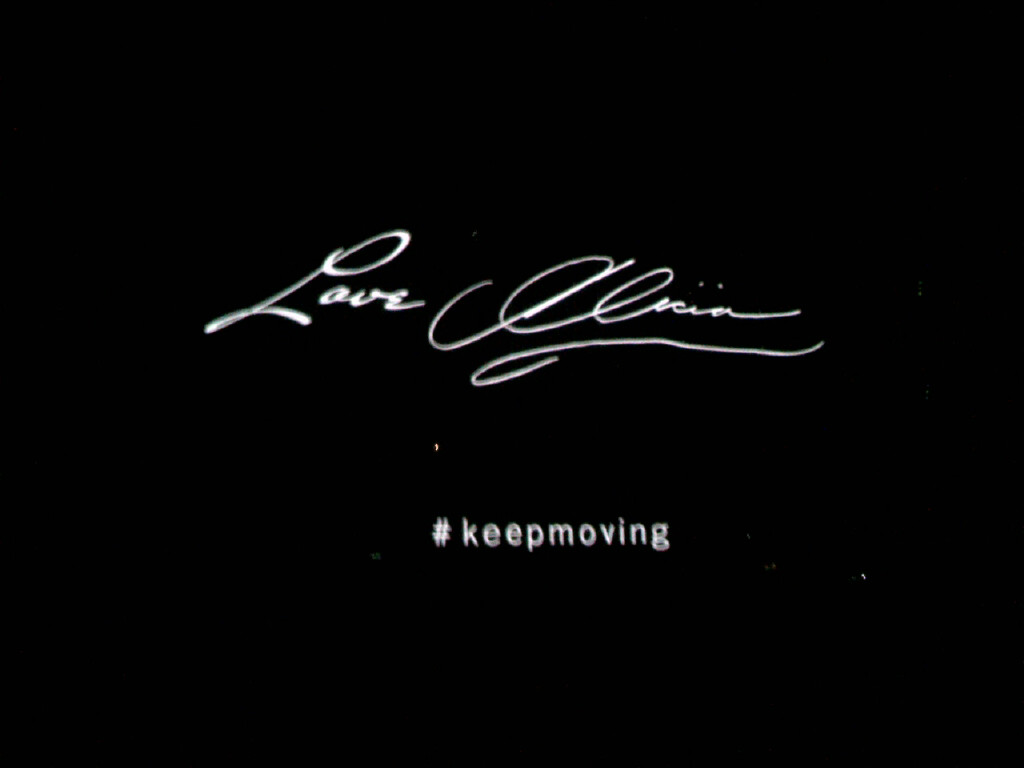 Love Alicia
#keepmoving